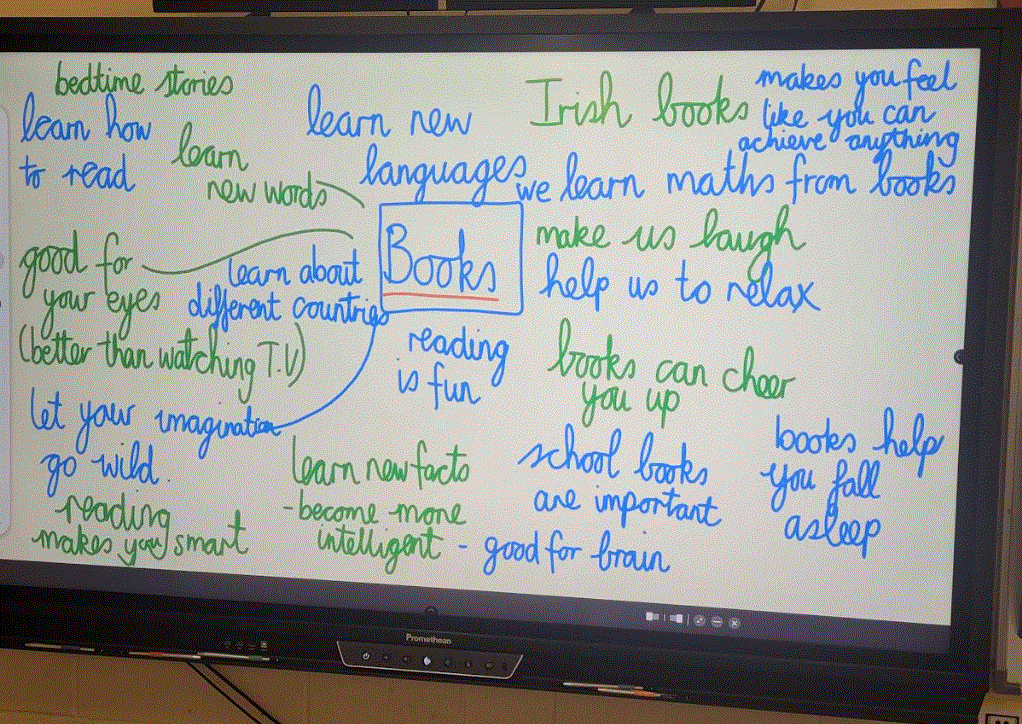 bedtime stories
learn how
to read
learn
new words
learn new
languages
Irish books
makes you feel
like you can
achieve anything
we learn maths from books
Books
make us laugh
help us to relax
good for
your eyes
(better than watching T.V)
learn about
different countries
reading
is fun
books can cheer
you up
let your imagination
go wild.
reading
makes you smart
learn new facts
- become more
intelligent - good for brain
school books
are important
books help
you fall
asleep
Promethean